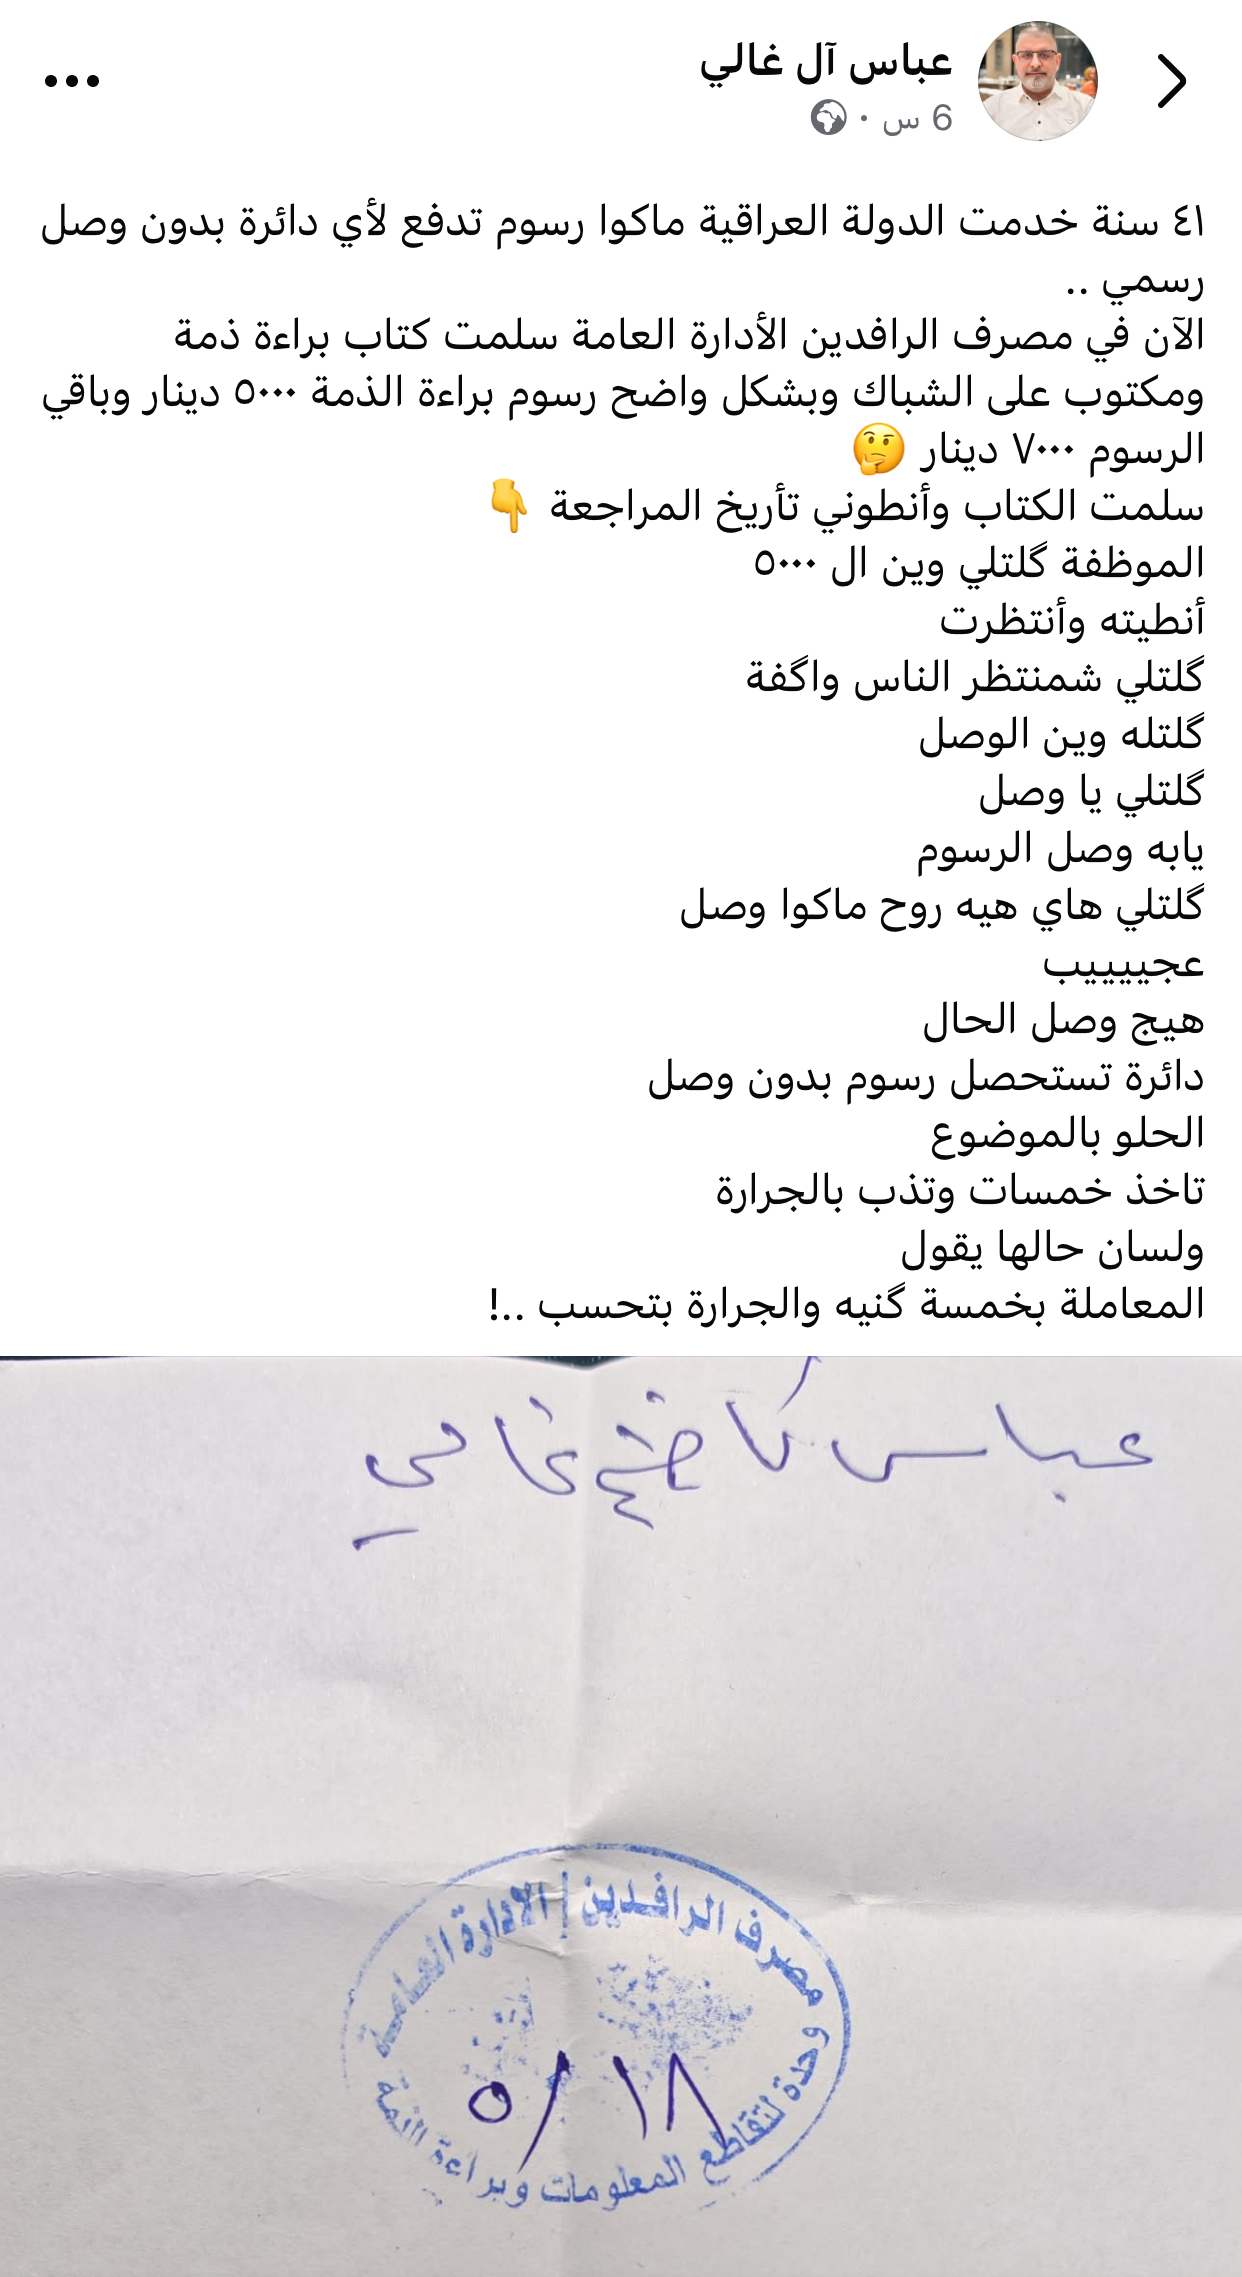 عباس آل غالي
6 س ·
٤١ سنة خدمت الدولة العراقية ماكوا رسوم تدفع لأي دائرة بدون وصل
رسمي ..
الآن في مصرف الرافدين الأدارة العامة سلمت كتاب براءة ذمة
ومكتوب على الشباك وبشكل واضح رسوم براءة الذمة ٥٠٠٠ دينار وباقي
الرسوم ٧٠٠٠ دينار 🤔
سلمت الكتاب وأنطوني تأريخ المراجعة 👇
الموظفة گلتلي وين ال ٥٠٠٠
أنطيته وأنتظرت
گلتلي شمنتظر الناس واگفة
گلتله وين الوصل
گلتلي يا وصل
يابه وصل الرسوم
گلتلي هاي هيه روح ماكوا وصل
عجيييييب
هيج وصل الحال
دائرة تستحصل رسوم بدون وصل
الحلو بالموضوع
تاخذ خمسات وتذب بالجرارة
ولسان حالها يقول
المعاملة بخمسة گنيه والجرارة بتحسب ..!
عباس كاظم غالي
مصرف الرافدين / الادارة العامة
١٨ / ٥
وحدة لتقاطع المعلومات وبراءة الذمة